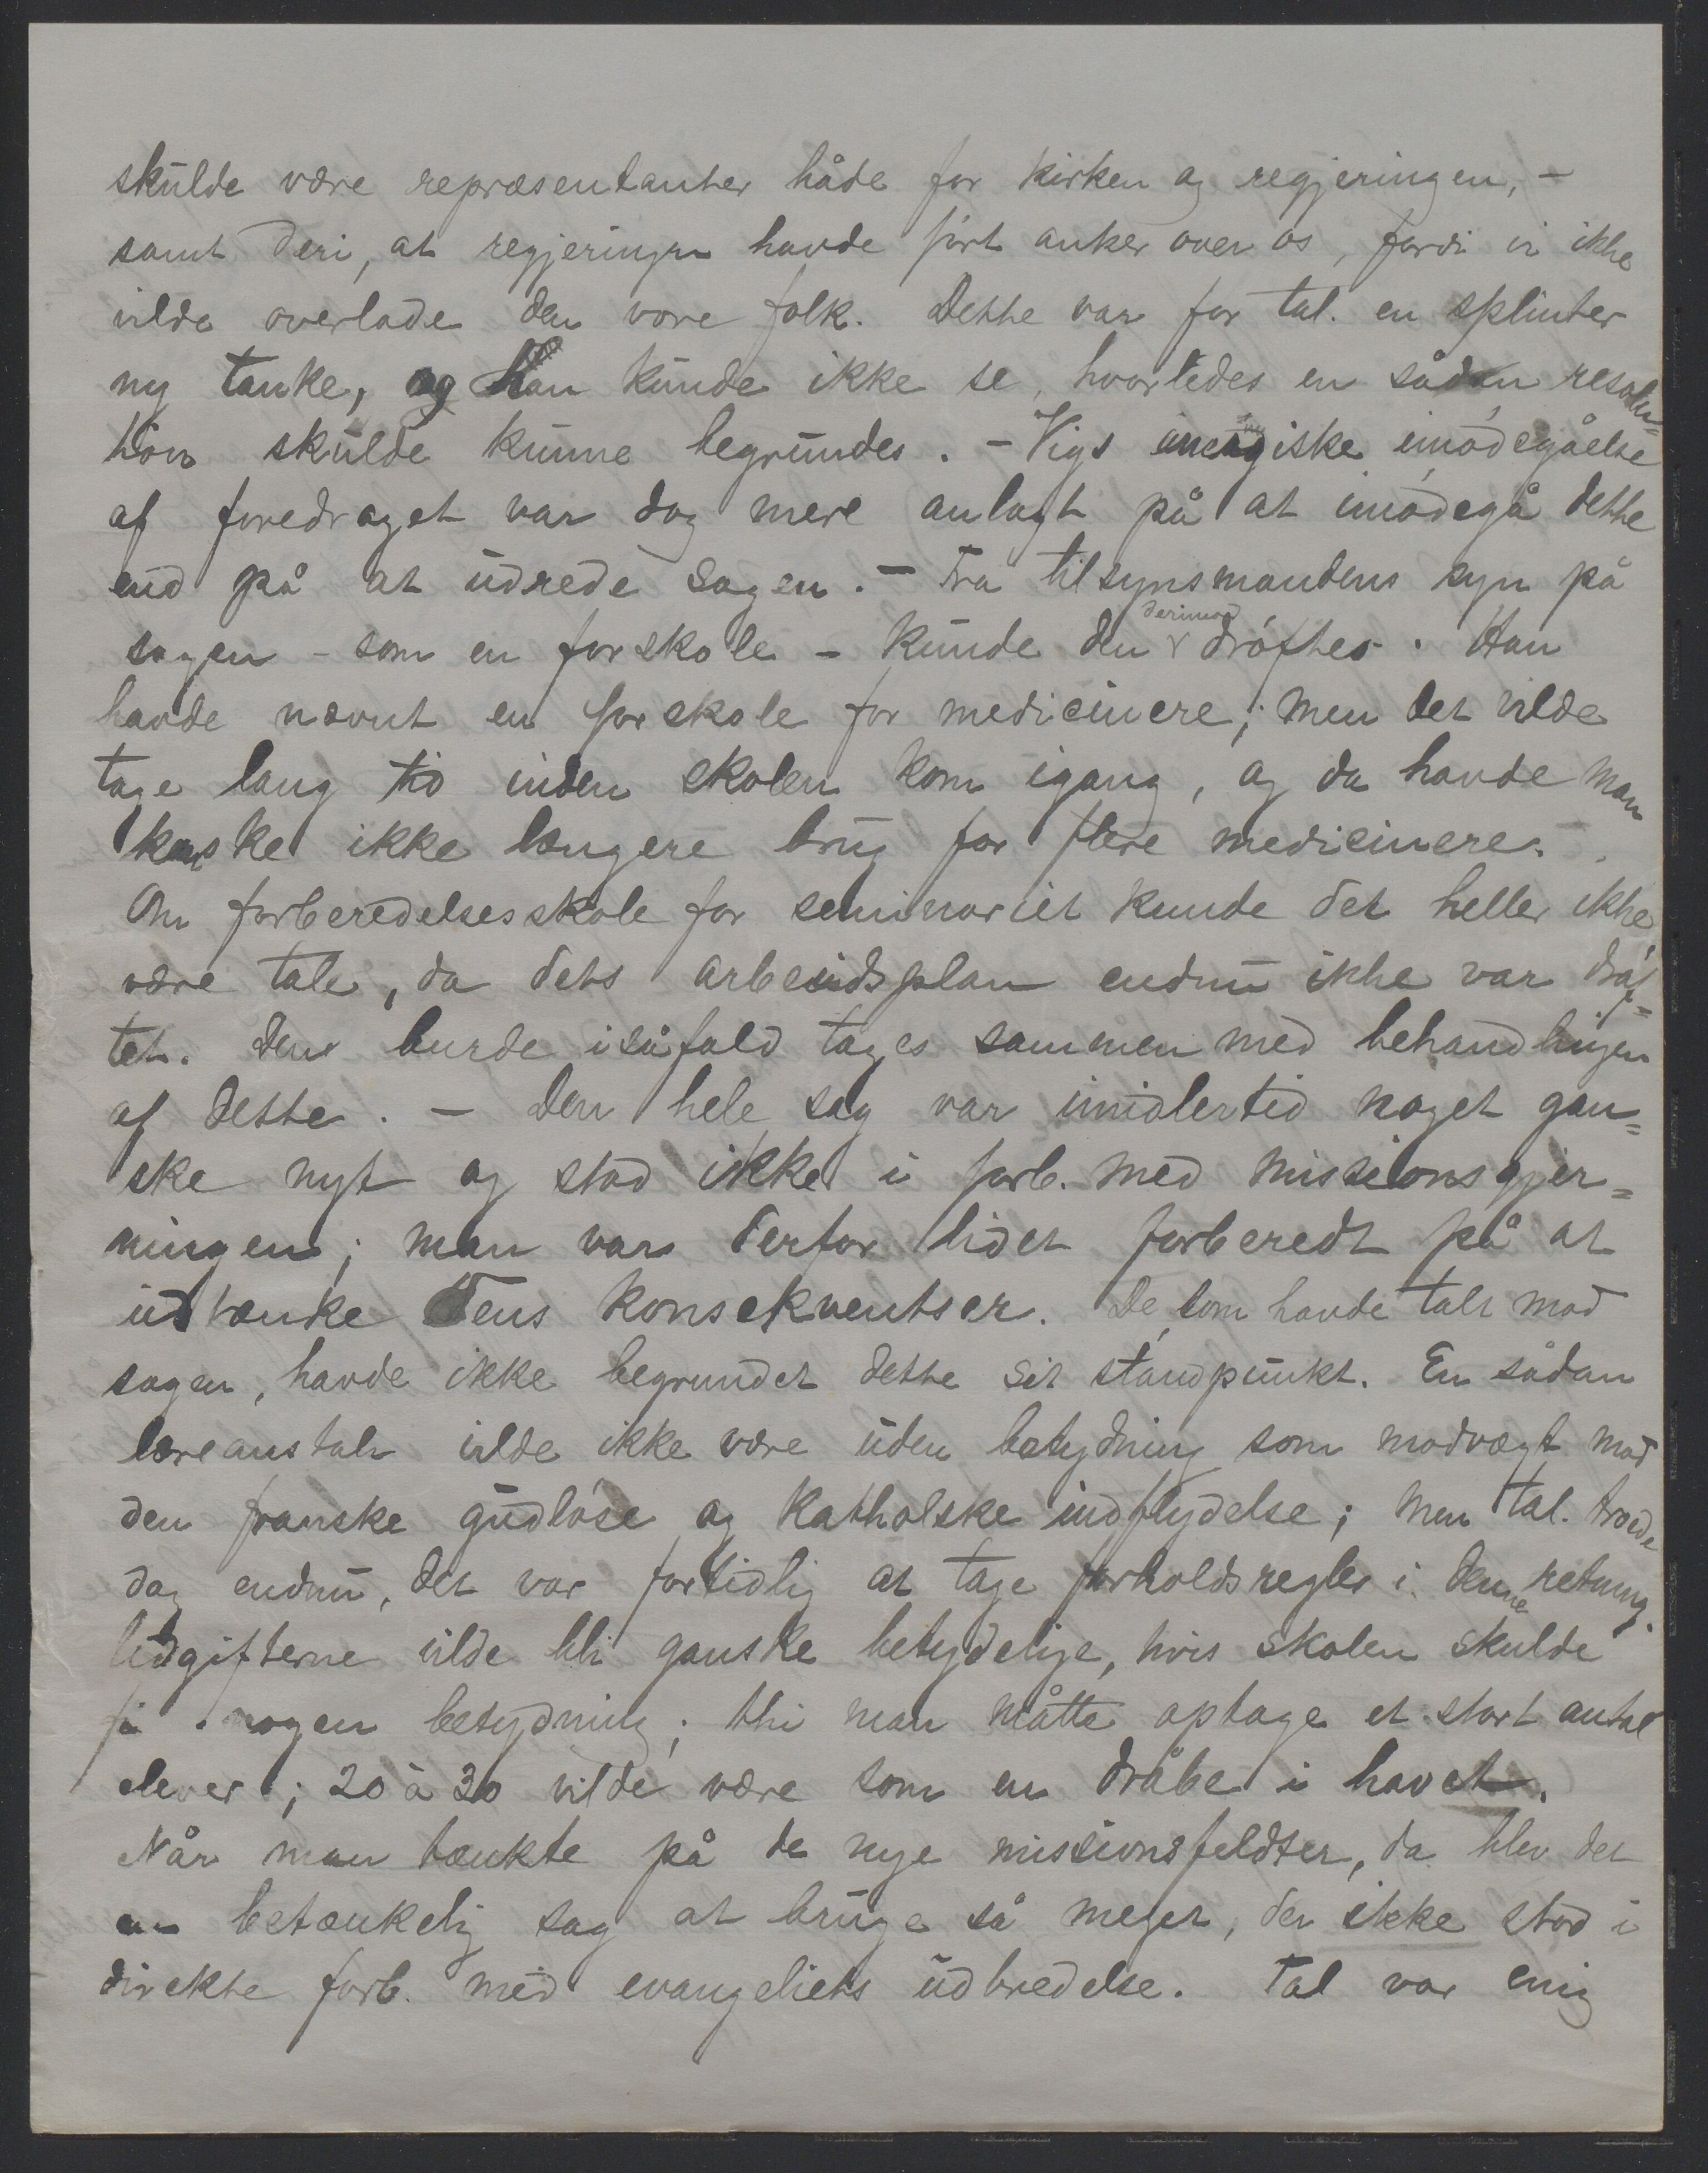 skulde være repræsentanter både for kirken og regjeringen, –
samt deri, at regjeringen havde ført anker over os, fordi vi ikke
vilde overlade den vore folk. Dette var for tal. en splinter
ny tanke, og han kunde ikke se, hvorledes en sådan resolu=
tion skulde kunne begrundes. – Vigs energiske imødegåelse
af foredraget var dog mere anlagt på at imødegå dette
end på at udrede sagen. – Fra tilsynsmandens syn på
sagen – som en forskole – kunde den derimod drøftes. Han
havde nævnt en forskole for medicinere; men det vilde
tage lang tid inden skolen kom igang, og da havde man
kanske ikke længere brug for flere medicinere.
Om forberedelsesskole for seminariet kunde det heller ikke
være tale, da dets arbeidsplan endnu ikke var drøf=
tet. Den burde isåfald tages sammen med behandlingen
af dette. – Den hele sag var imidlertid noget gan=
ske nyt og stod ikke i forb. med missionsgjer=
ningen; man var derfor lidet forberedt på at
udtænke dens konsekventser. De, som havde talt mod
sagen, havde ikke begrundet dette sit standpunkt. En sådan
læreanstalt vilde ikke være uden betydning som modvægt mod
den franske gudløse og katholske indflydelse; men tal. troede
dog endnu, det var fortidlig at tage forholdsregler i denne retning.
Udgifterne vilde bli ganske betydelige, hvis skolen skulde
få nogen betydning; thi man måtte optage et stort antal
elever; 20 à 30 vilde være som en dråbe i havet.
Når man tænkte på de nye missionsfeldter, da blev det
en betænkelig sag at bruge så meget, der ikke stod i
direkte forb. med evangeliets udbredelse. Tal var enig